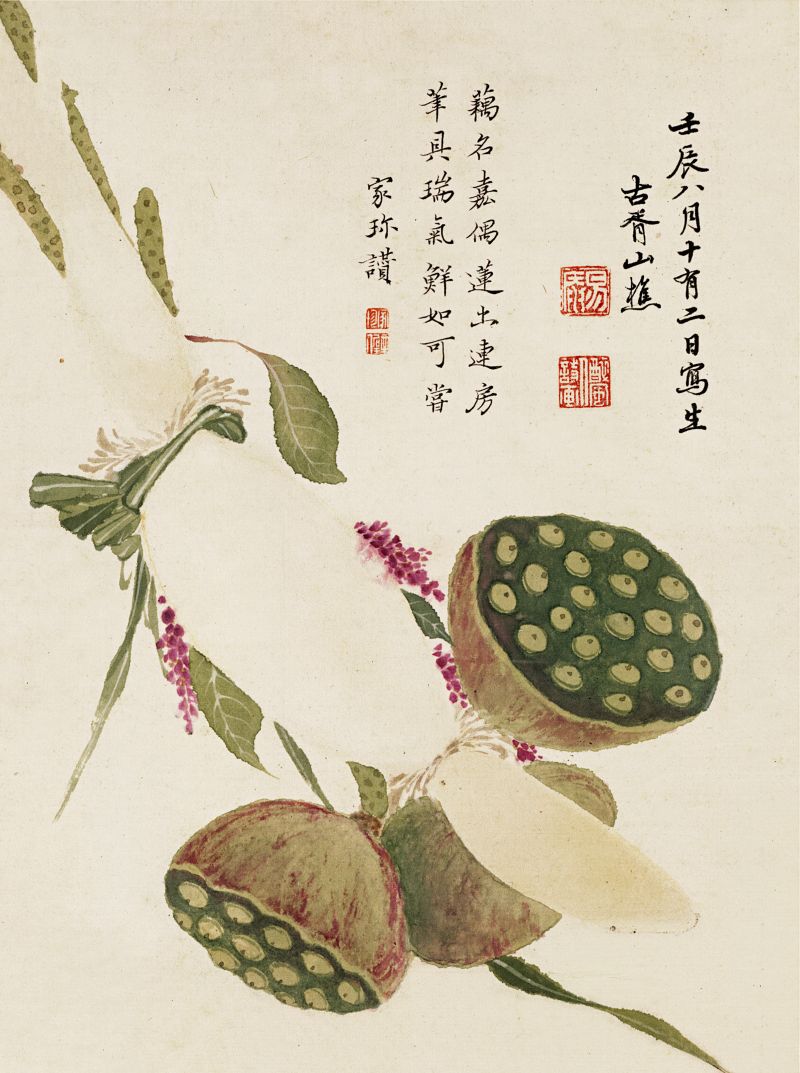 壬辰八月十有二日寫生
古胥山樵
藕名嘉偶蓮出連房
筆具瑞氣鮮如可嘗
家珎讚